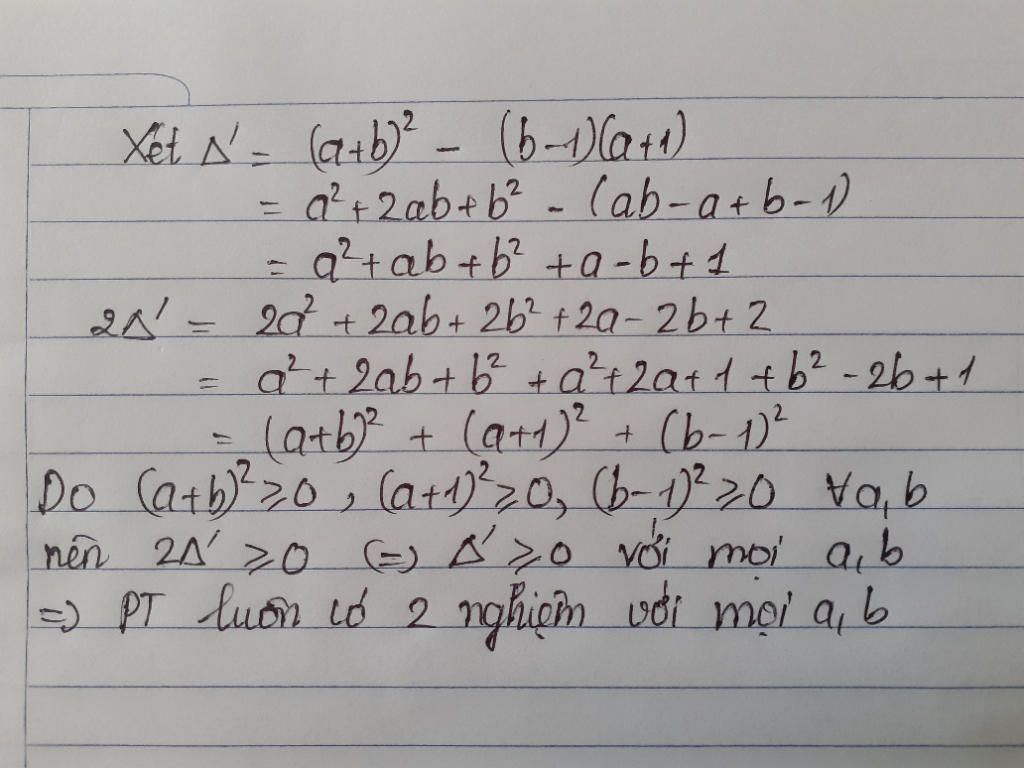 Xét Δ' = (a+b)² - (b-1)(a+1)
= a² + 2ab + b² - (ab - a + b - 1)
= a² + ab + b² + a - b + 1
2Δ' = 2a² + 2ab + 2b² + 2a - 2b + 2
= a² + 2ab + b² + a² + 2a + 1 + b² - 2b + 1
= (a+b)² + (a+1)² + (b-1)²
Do (a+b)² ≥ 0, (a+1)² ≥ 0, (b-1)² ≥ 0 ∀a, b
nên 2Δ' ≥ 0 (=) Δ' ≥ 0 với mọi a, b
=) PT luôn có 2 nghiệm với mọi a, b